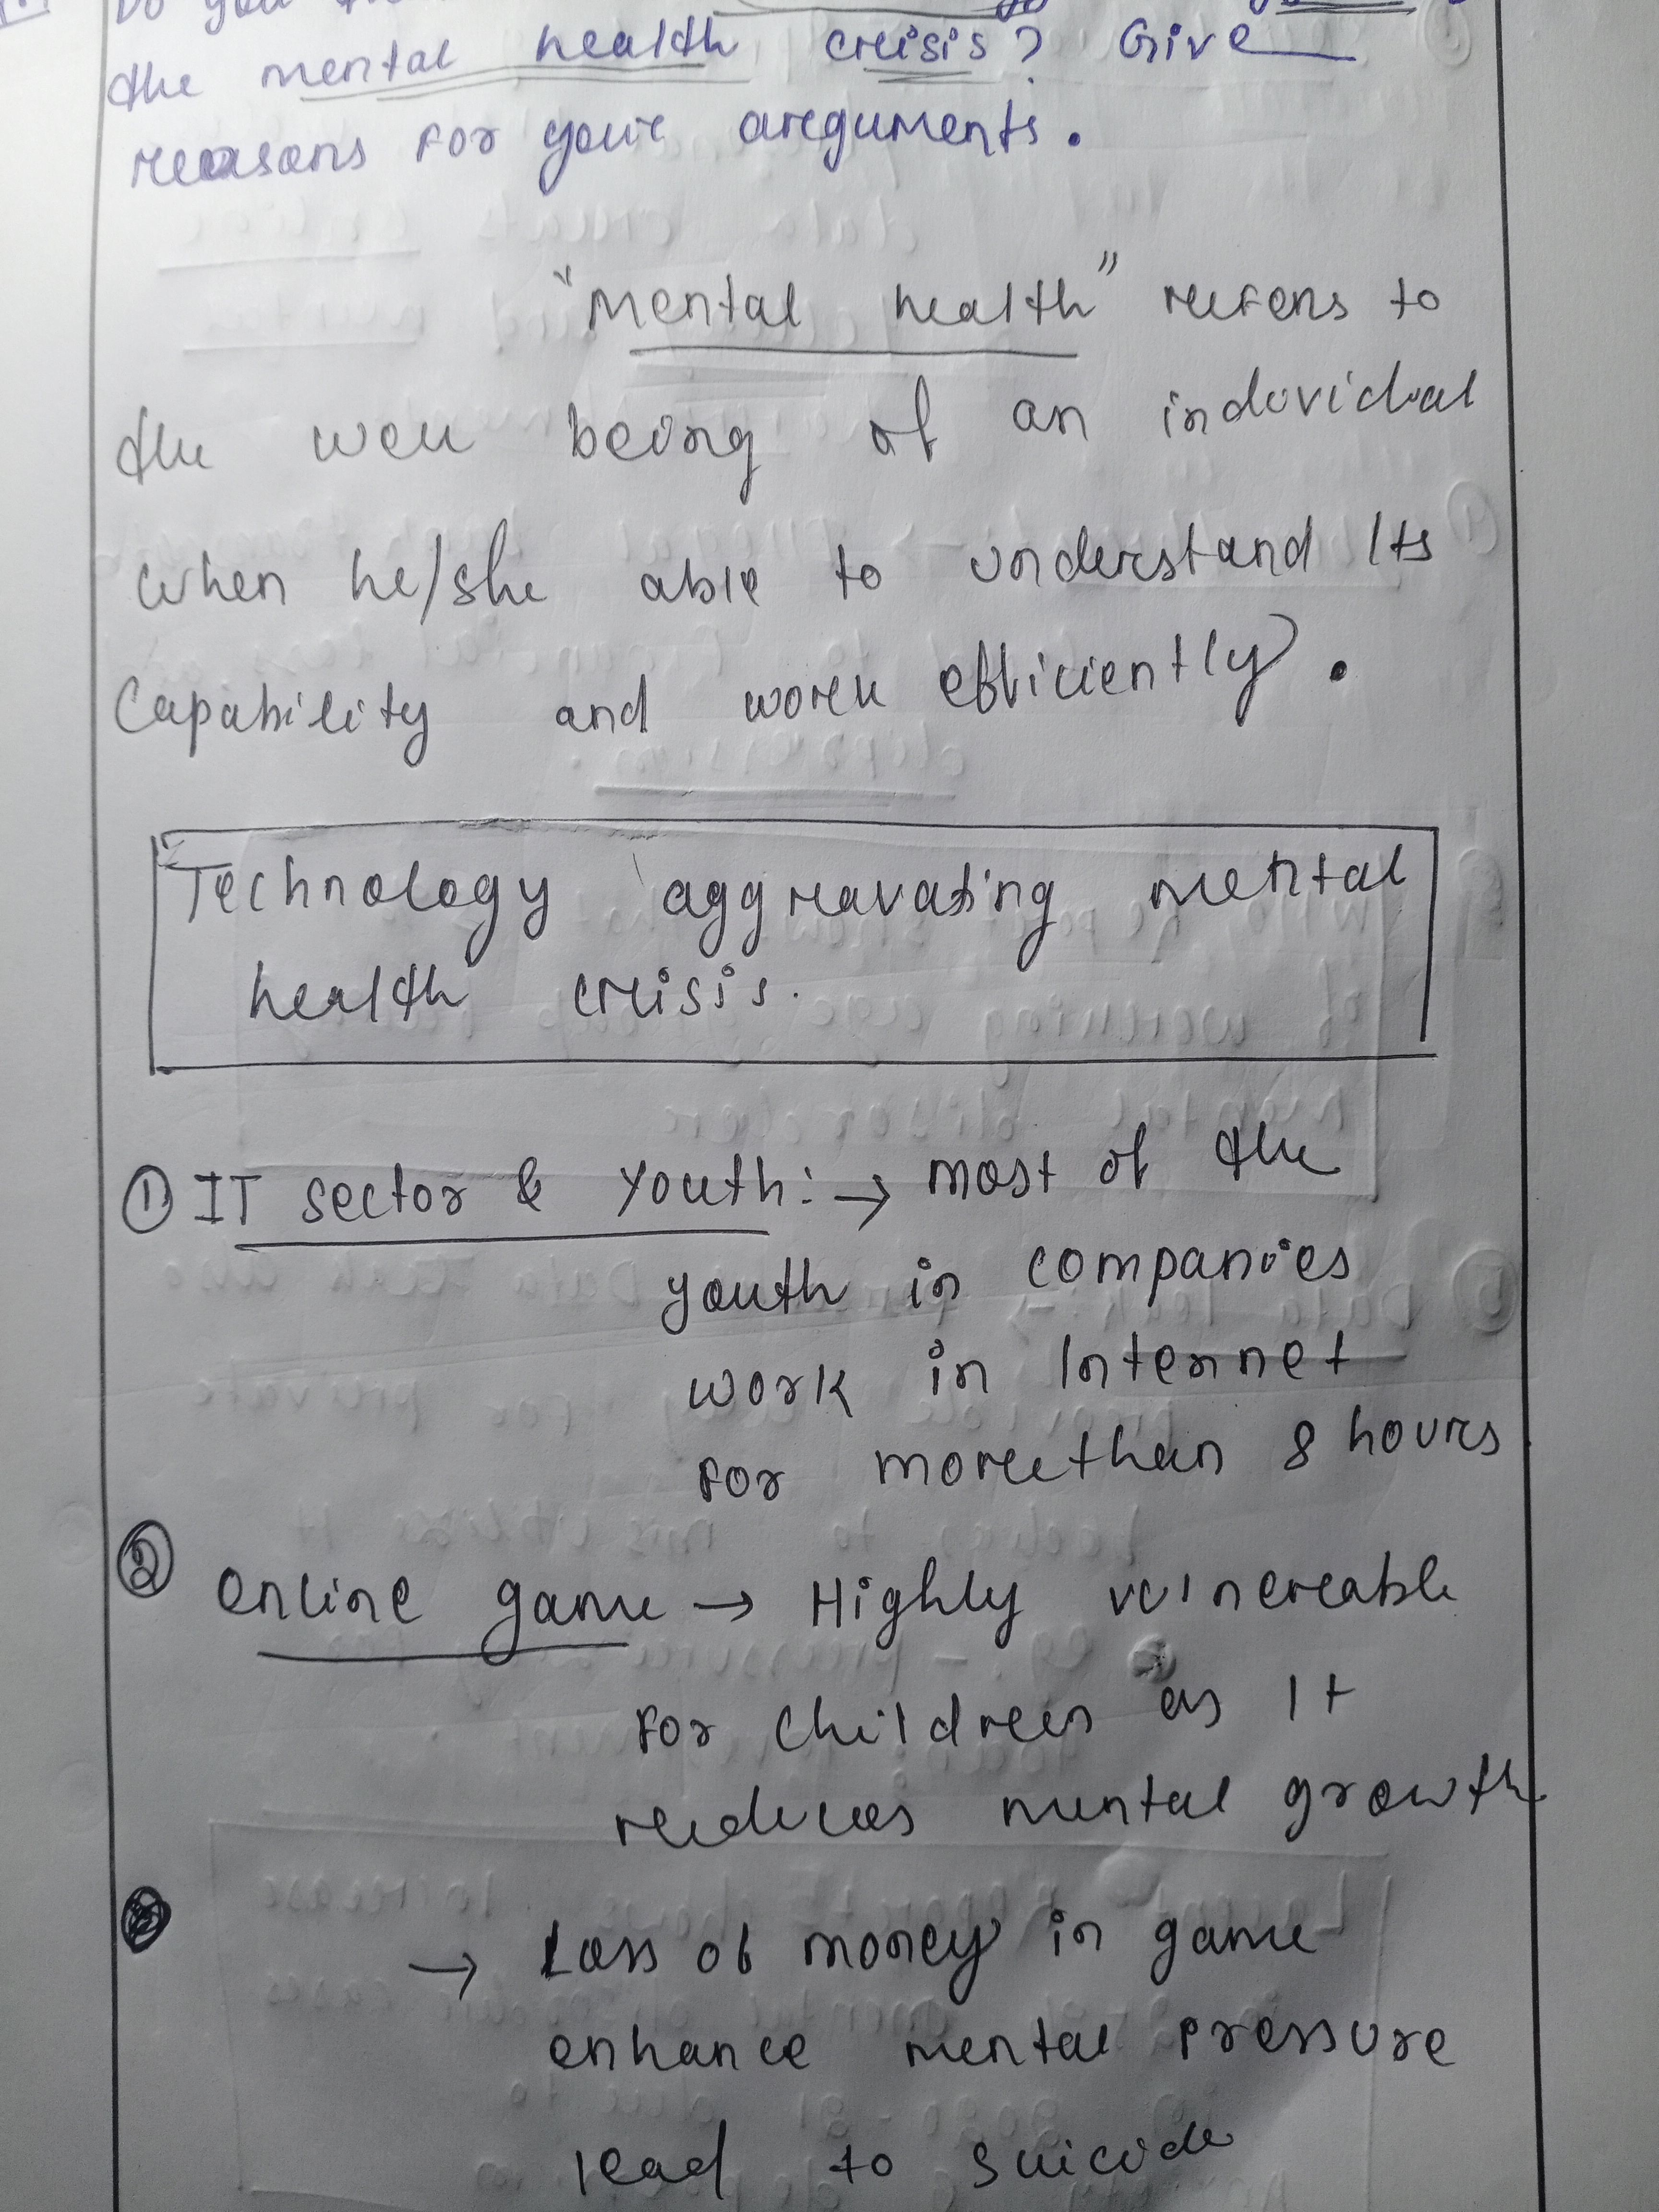 Do you
the mental health crisis? Give
reasons for your arguments.
"Mental health" refers to
the well being of an individual
when he/she able to understand Its
Capability and work efficiently.
Technology aggravating mental
health crisis.
① IT sector & Youth: → most of the
youth in companies
work in Internet
for more than 8 hours
② Online game → Highly vulnerable
for children as It
reduces mental growth
→ Loss of money in game
enhance mental pressure
lead to suicide